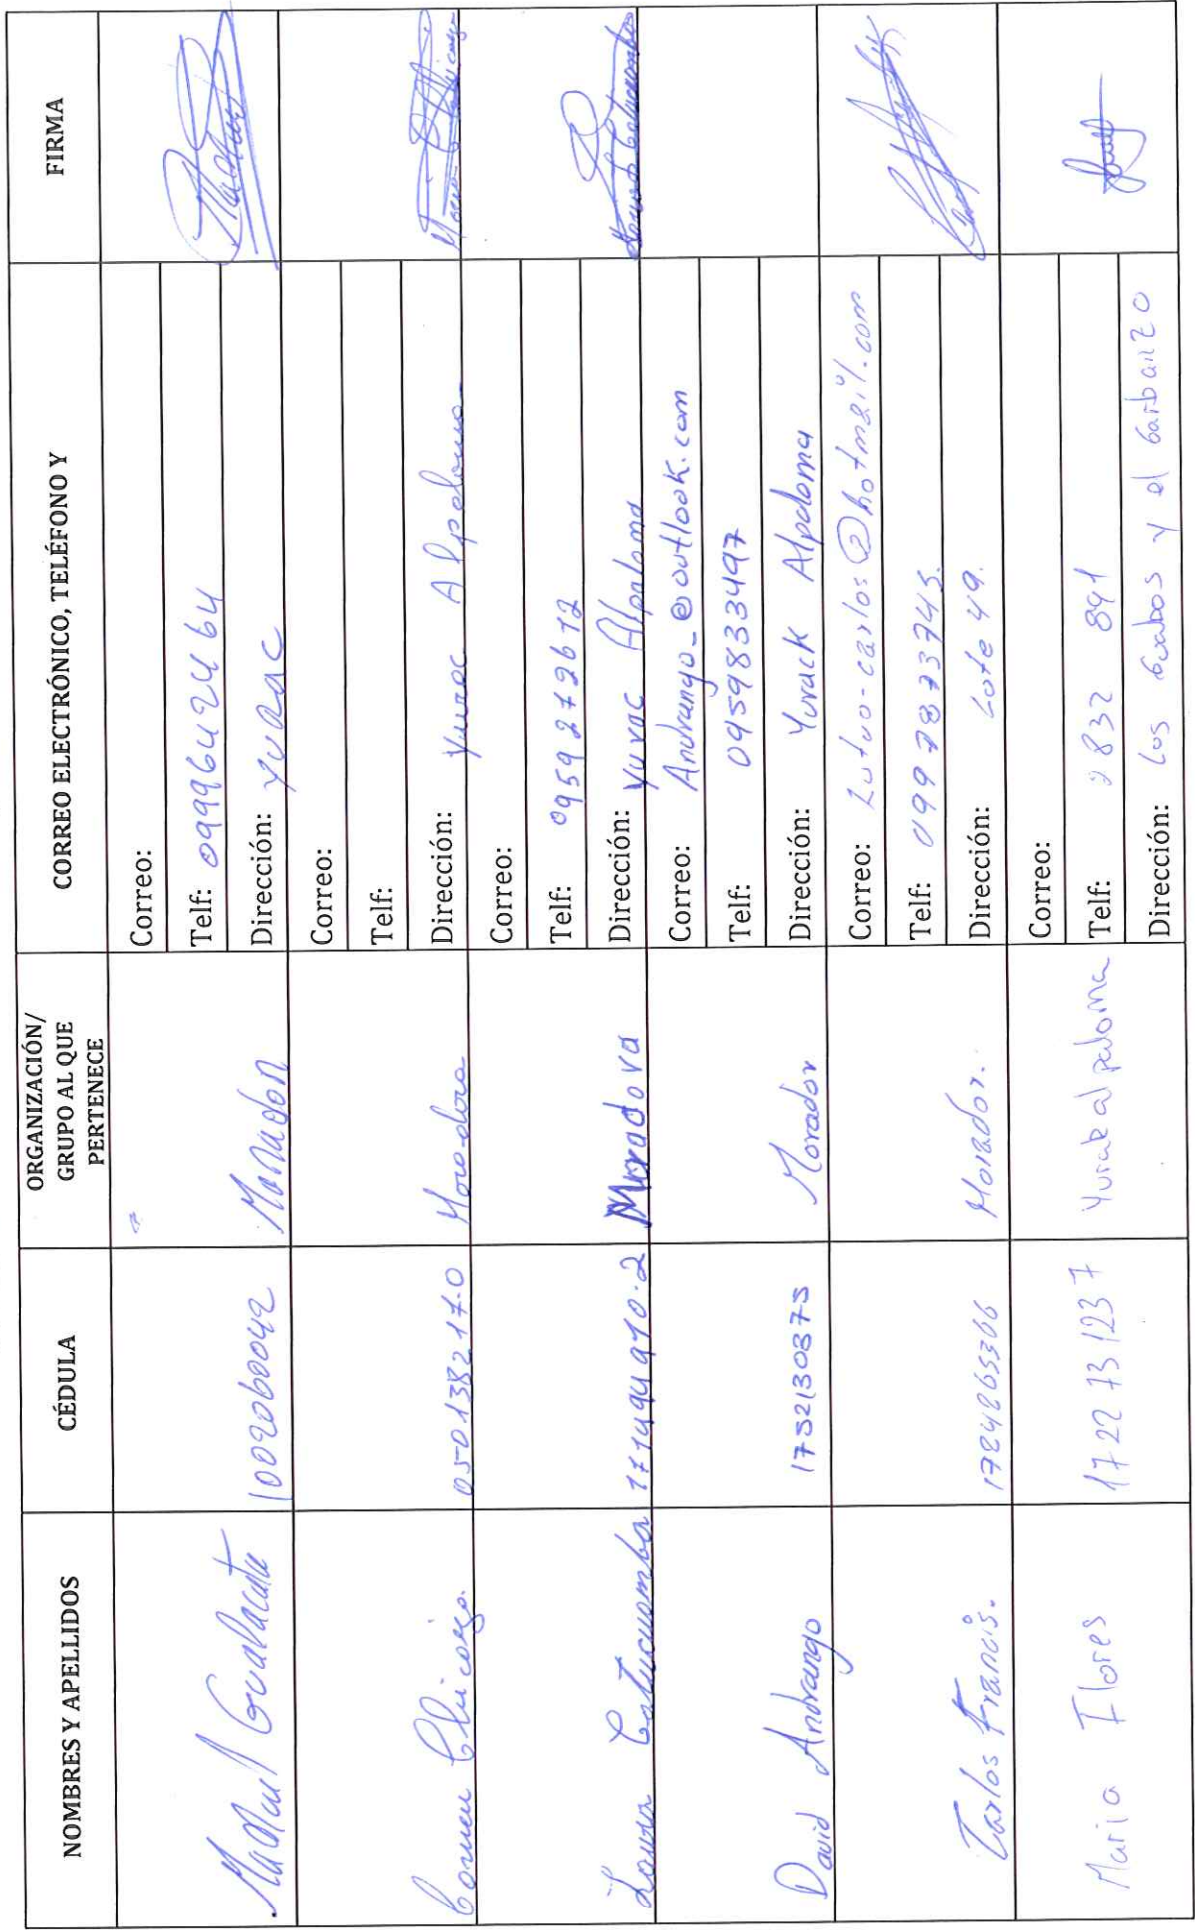 NOMBRES Y APELLIDOS CÉDULA ORGANIZACIÓN/ GRUPO AL QUE PERTENECE CORREO ELECTRÓNICO, TELÉFONO Y FIRMA
Manuel Gualacata 1002060042 Morador
Correo:
Telf: 0996424464
Dirección: yurac
Carmen Chicaiza. 050138217-0 Moradora
Correo:
Telf:
Dirección: Yurac Alpaloma
Laura Catucuamba 171494970-2 Moradora
Correo:
Telf: 0959272672
Dirección: Yurac Alpaloma
David Andrango 1752130875 Morador
Correo: Andrango_@outlook.com
Telf: 0459833497
Dirección: Yurack Alpaloma
Carlos Francis. 1724865366 Morador.
Correo: Lutuo-carlos@hotmail.com
Telf: 0997873745.
Dirección: Lote 49.
Maria Flores 1722731237 Yurak alpaloma
Correo:
Telf: 2832 891
Dirección: Los Guabos y el Garbanzo